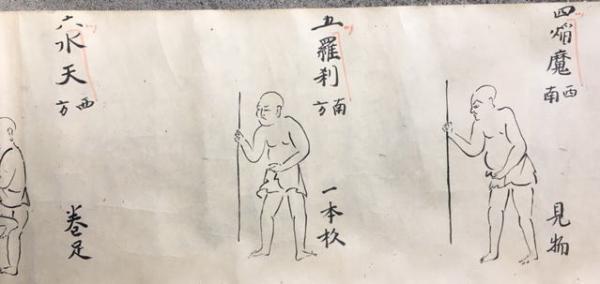 四焔魔
西南
見物
五羅刹
南方
一本杖
六水天
西方
巻足